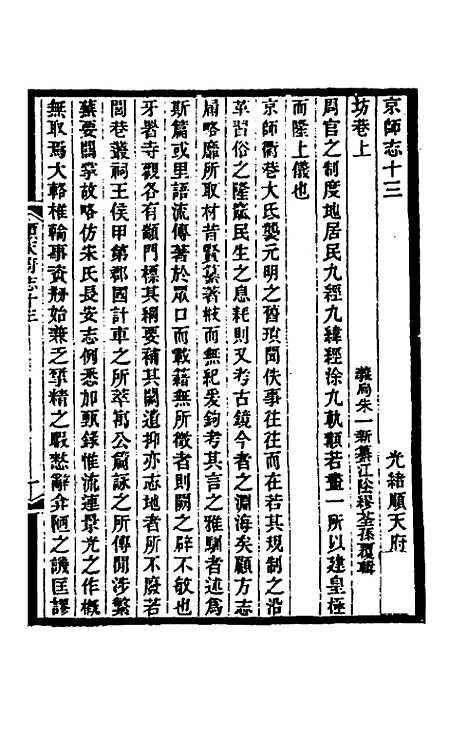 京師志十三　　光緒順天府
坊巷上　　義烏朱一新纂江陰繆荃孫覆輯
周官之制度地居民九經九緯經涂九軌顯若畫一所以建皇極
而隆上儀也
京師衢巷大氐襲元明之舊瑣聞佚事往往而在若其規制之沿
革習俗之隆窳民生之息耗則又考古鏡今者之淵海矣顧方志
屑略靡所取材昔賢纂著岐而無紀爰鉤考其言之雅馴者述為
斯篇或里語流傳著於眾口而載籍無所徵者則闕之辟不敏也
牙署寺觀各有顓門標其綱要補其闕遺抑亦志地者所不廢若
閭巷叢祠王侯甲第郡國計車之所萃寓公篇詠之所傳聞涉繁
蕪要關掌故略仿朱氏長安志例悉加甄錄惟流連景光之作概
無取焉大輅椎輪事資剏始兼乏揅精之暇愁辭弇陋之譏匡謬
順天府志十三　一